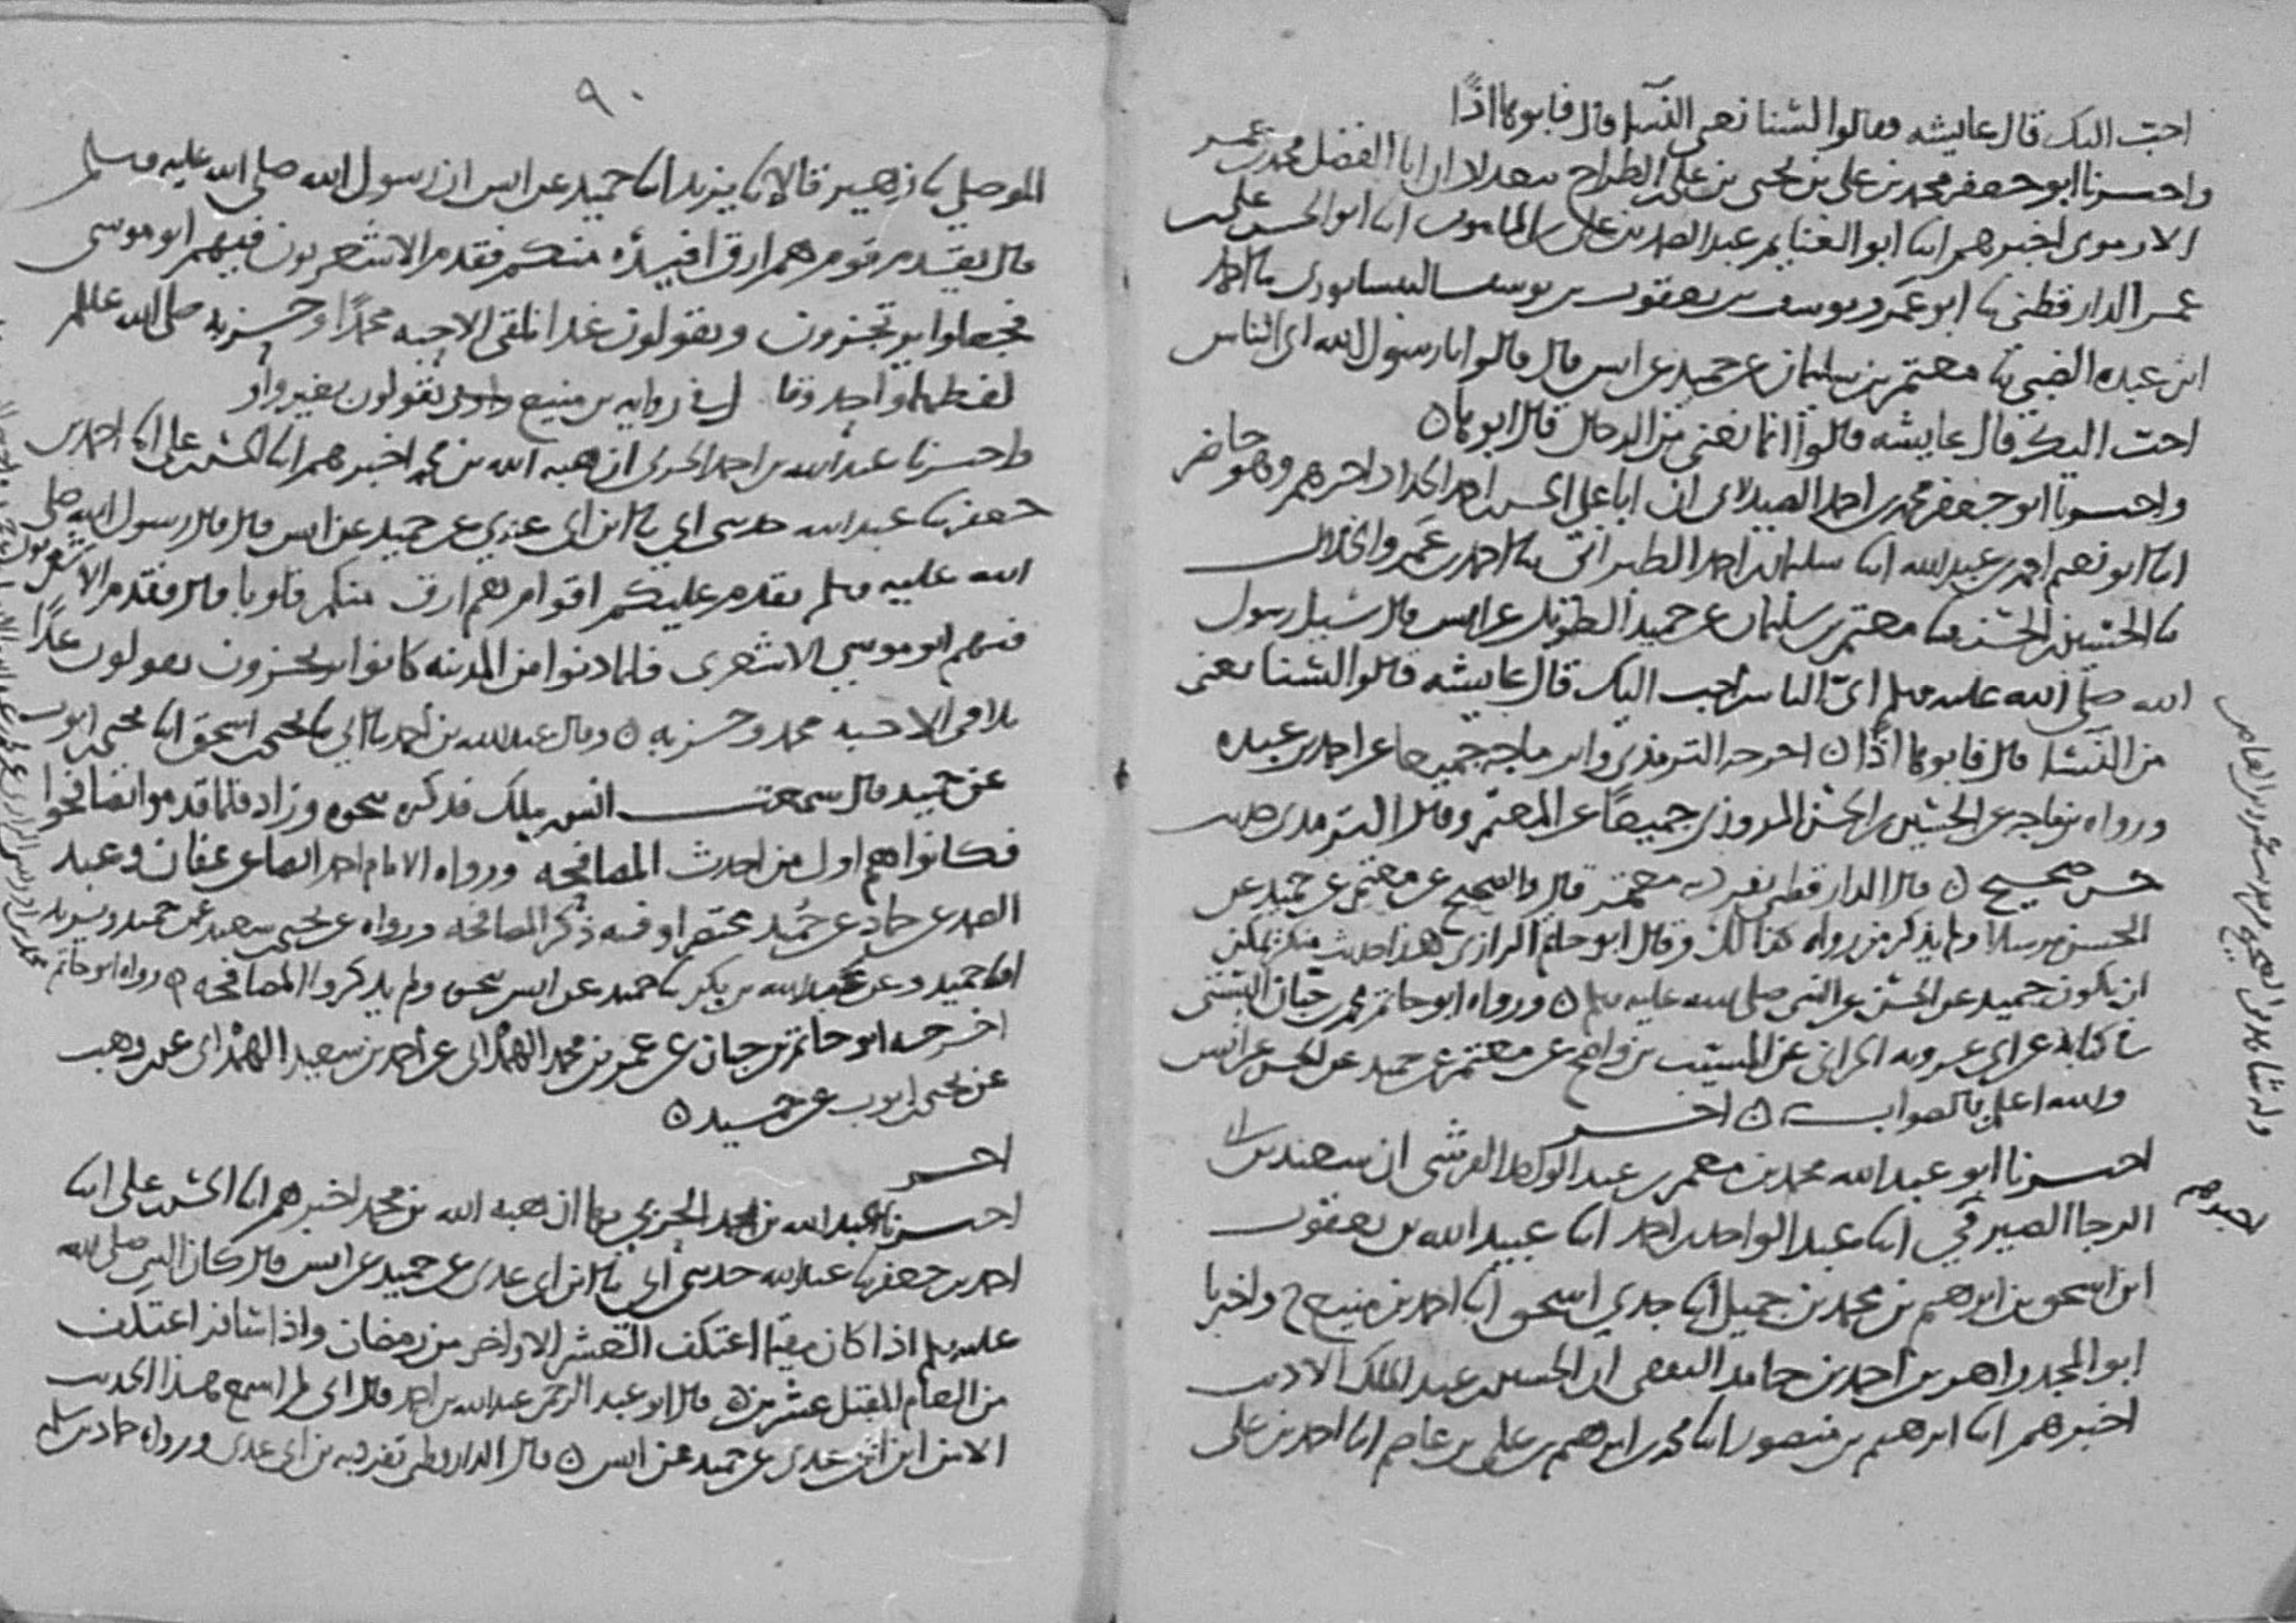 احب اليك قال عايشه فقالوا لسنا نعني النسا قال فابوها اذا
واخبرنا ابو جعفر محمد بن علي بن يحيى بن علي الطراح ببغداد ان ابا الفضل محمد بن عمر
الارموي اخبرهم ابنا ابو الغنايم عبد الصمد بن علي بن المامون ابنا ابو الحسن علي بن
عمر الدارقطني ثنا ابو عمرو يوسف بن يعقوب بن يوسف النيسابوري ثنا احمد
ابن عبده الضبي ثنا معتمر بن سليمان عن حميد عن انس قال قالوا يا رسول الله اي الناس
احب اليك قال عايشه قالوا انما نعني من الرجال قال ابوها ه
واخبرنا ابو جعفر محمد بن احمد الصيدلاني ان ابا علي الحسن بن احمد الحداد اخبرهم وهو حاضر
ابنا ابو نعيم احمد بن عبد الله ابنا سليمان بن احمد الطبراني ثنا احمد بن عمرو الخلال
ثنا الحسين بن الحسن ثنا معتمر بن سليمان عن حميد الطويل عن انس قال سيل رسول
الله صلى الله عليه وسلم اي الناس احب اليك قال عايشه قالوا لسنا نعني
من النسا قال فابوها اذا ه اخرجه الترمذي وابن ماجه جميعا عن احمد بن عبده
ورواه بن ماجه عن الحسين بن الحسن المروزي جميعا عن المعتمر وقال الترمذي حديث
حسن صحيح ه قال الدارقطني تفرد به معتمر قال والصحيح عن معتمر عن حميد عن
الحسن مرسلا ولم يذكر من رواه كذلك وقال ابو حاتم الرازي هذا حديث منكر يمكن
ان يكون حميد عن الحسن عن النبي صلى الله عليه وسلم ه ورواه ابو حاتم محمد بن حبان البستي
في كتابه عن ابي عروبه الحراني عن المسيب بن واضح عن معتمر عن حميد عن الحسن عن انس
والله اعلم بالصواب ه اخر
اخبرنا ابو عبد الله محمد بن معمر بن عبد الواحد القرشي ان سعيد بن ابي
الرجا الصيرفي اخبرهم ابنا عبد الواحد بن احمد ابنا عبيد الله بن يعقوب
ابن اسحق بن ابرهيم بن محمد بن جميل ابنا جدي اسحق ابنا احمد بن منيع ح واخبرنا
ابو المجد زاهر بن احمد بن حامد الثقفي ان الحسين بن عبد الملك الاديب
اخبرهم ابنا ابرهيم بن منصور ابنا محمد بن ابرهيم بن علي بن عاصم ابنا احمد بن علي
٩٠
الموصلي ثنا زهير قالا ثنا يزيد ابنا حميد عن انس ان رسول الله صلى الله عليه وسلم
قال يقدم قوم هم ارق افيدة منكم فقدم الاشعريون فيهم ابو موسى
فجعلوا يرتجزون ويقولون غدا نلقى الاحبه محمدا وحزبه صلى الله عليه وسلم
لفظهما واحد وفي رواية بن منيع يقولون بغير واو
واخبرنا عبد الله بن احمد الحربي ان هبه الله بن محمد اخبرهم ابنا الحسن بن علي ابنا احمد بن
جعفر ثنا عبد الله حدثني ابي ثنا ابن ابي عدي عن حميد عن انس قال قال رسول الله صلى
الله عليه وسلم يقدم عليكم اقوام هم ارق منكم قلوبا قال فقدم الاشعريون
فيهم ابو موسى الاشعري فلما دنوا من المدينه كانوا يرتجزون يقولون غدا
نلاقي الاحبه محمد وحزبه ه وقال عبد الله بن احمد ثنا ابي ثنا يحيى بن اسحق ابنا يحيى بن ايوب
عن حميد قال سمعت انس بن ملك فذكر نحوه وزاد فلما قدموا تصافحوا
فكانوا هم اول من احدث المصافحه ورواه الامام احمد ايضا عن عفان وعبد
الصمد عن حماد عن حميد مختصرا وفيه ذكر المصافحه ورواه عن يحيى بن سعيد عن حميد ويزيد
ابنا حميد وعن عبد الله بن بكر ثنا حميد عن انس نحوه ولم يذكروا المصافحه ه
اخرجه ابو حاتم بن حبان عن عمر بن محمد الهمداني عن احمد بن سعيد الهمداني عن بن وهب
عن يحيى بن ايوب عن حميد ه
اخر
اخبرنا عبد الله بن احمد الحربي بها ان هبه الله بن محمد اخبرهم ابنا الحسن بن علي ابنا
احمد بن جعفر ثنا عبد الله حدثني ابي ثنا ابن ابي عدي عن حميد عن انس قال كان النبي صلى الله
عليه وسلم اذا كان مقيما اعتكف العشر الاواخر من رمضان واذا سافر اعتكف
من العام المقبل عشرين ه قال ابو عبد الرحمن عبد الله بن احمد قال ابي لم اسمع هذا الحديث
الا من ابن ابي عدي عن حميد عن انس ه قال الدارقطني تفرد به بن ابي عدي ورواه حماد بن سلمه